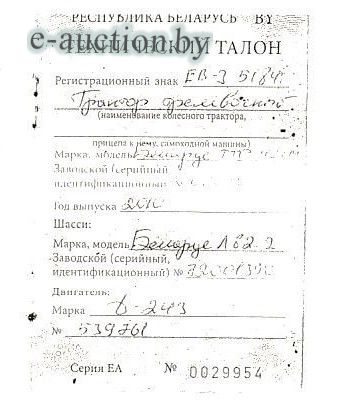 РЕСПУБЛИКА БЕЛАРУСЬ BY
e-auction.by
ТЕХНИЧЕСКИЙ ТАЛОН
Регистрационный знак ЕВ-3 5184
Трактор
(наименование колесного трактора,
прицепа к нему, самоходной машины)
Марка, модель Беларус
Заводской (серийный
идентификационный)
Год выпуска 2010
Шасси:
Марка, модель Беларус Л82.2
Заводской (серийный,
идентификационный) №
Двигатель:
Марка Д-243
№ 539761
Серия ЕА № 0029954